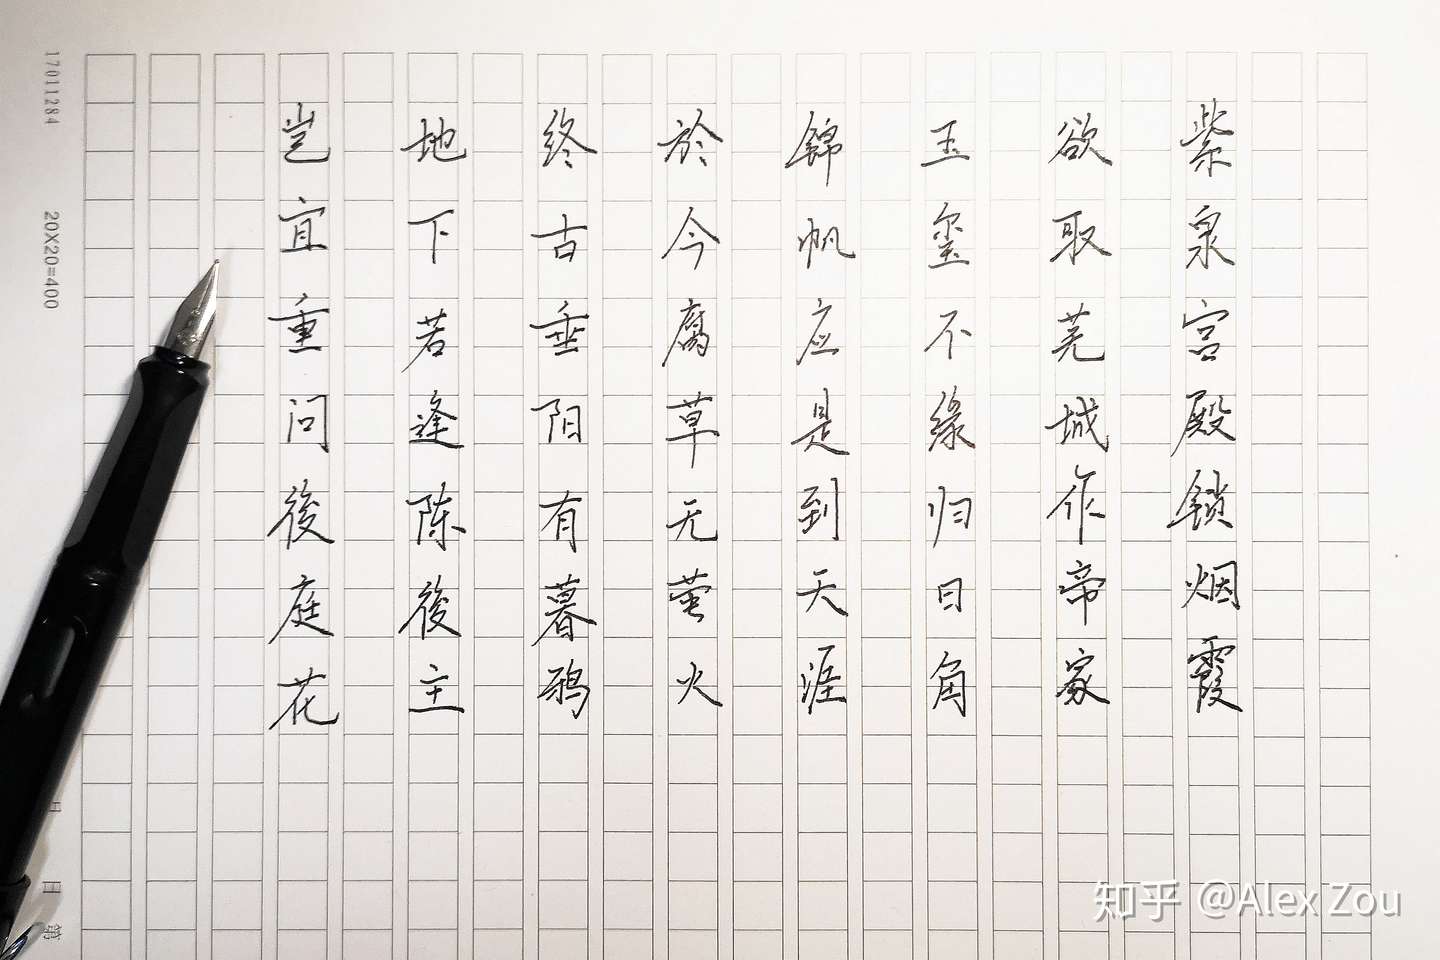 紫泉宫殿锁烟霞
欲取芜城作帝家
玉玺不缘归日角
錦帆应是到天涯
於今腐草无萤火
终古垂阳有暮鸦
地下若逢陈後主
岂宜重问後庭花
17011284
20X20=400
日
第
知乎 @Alex Zou